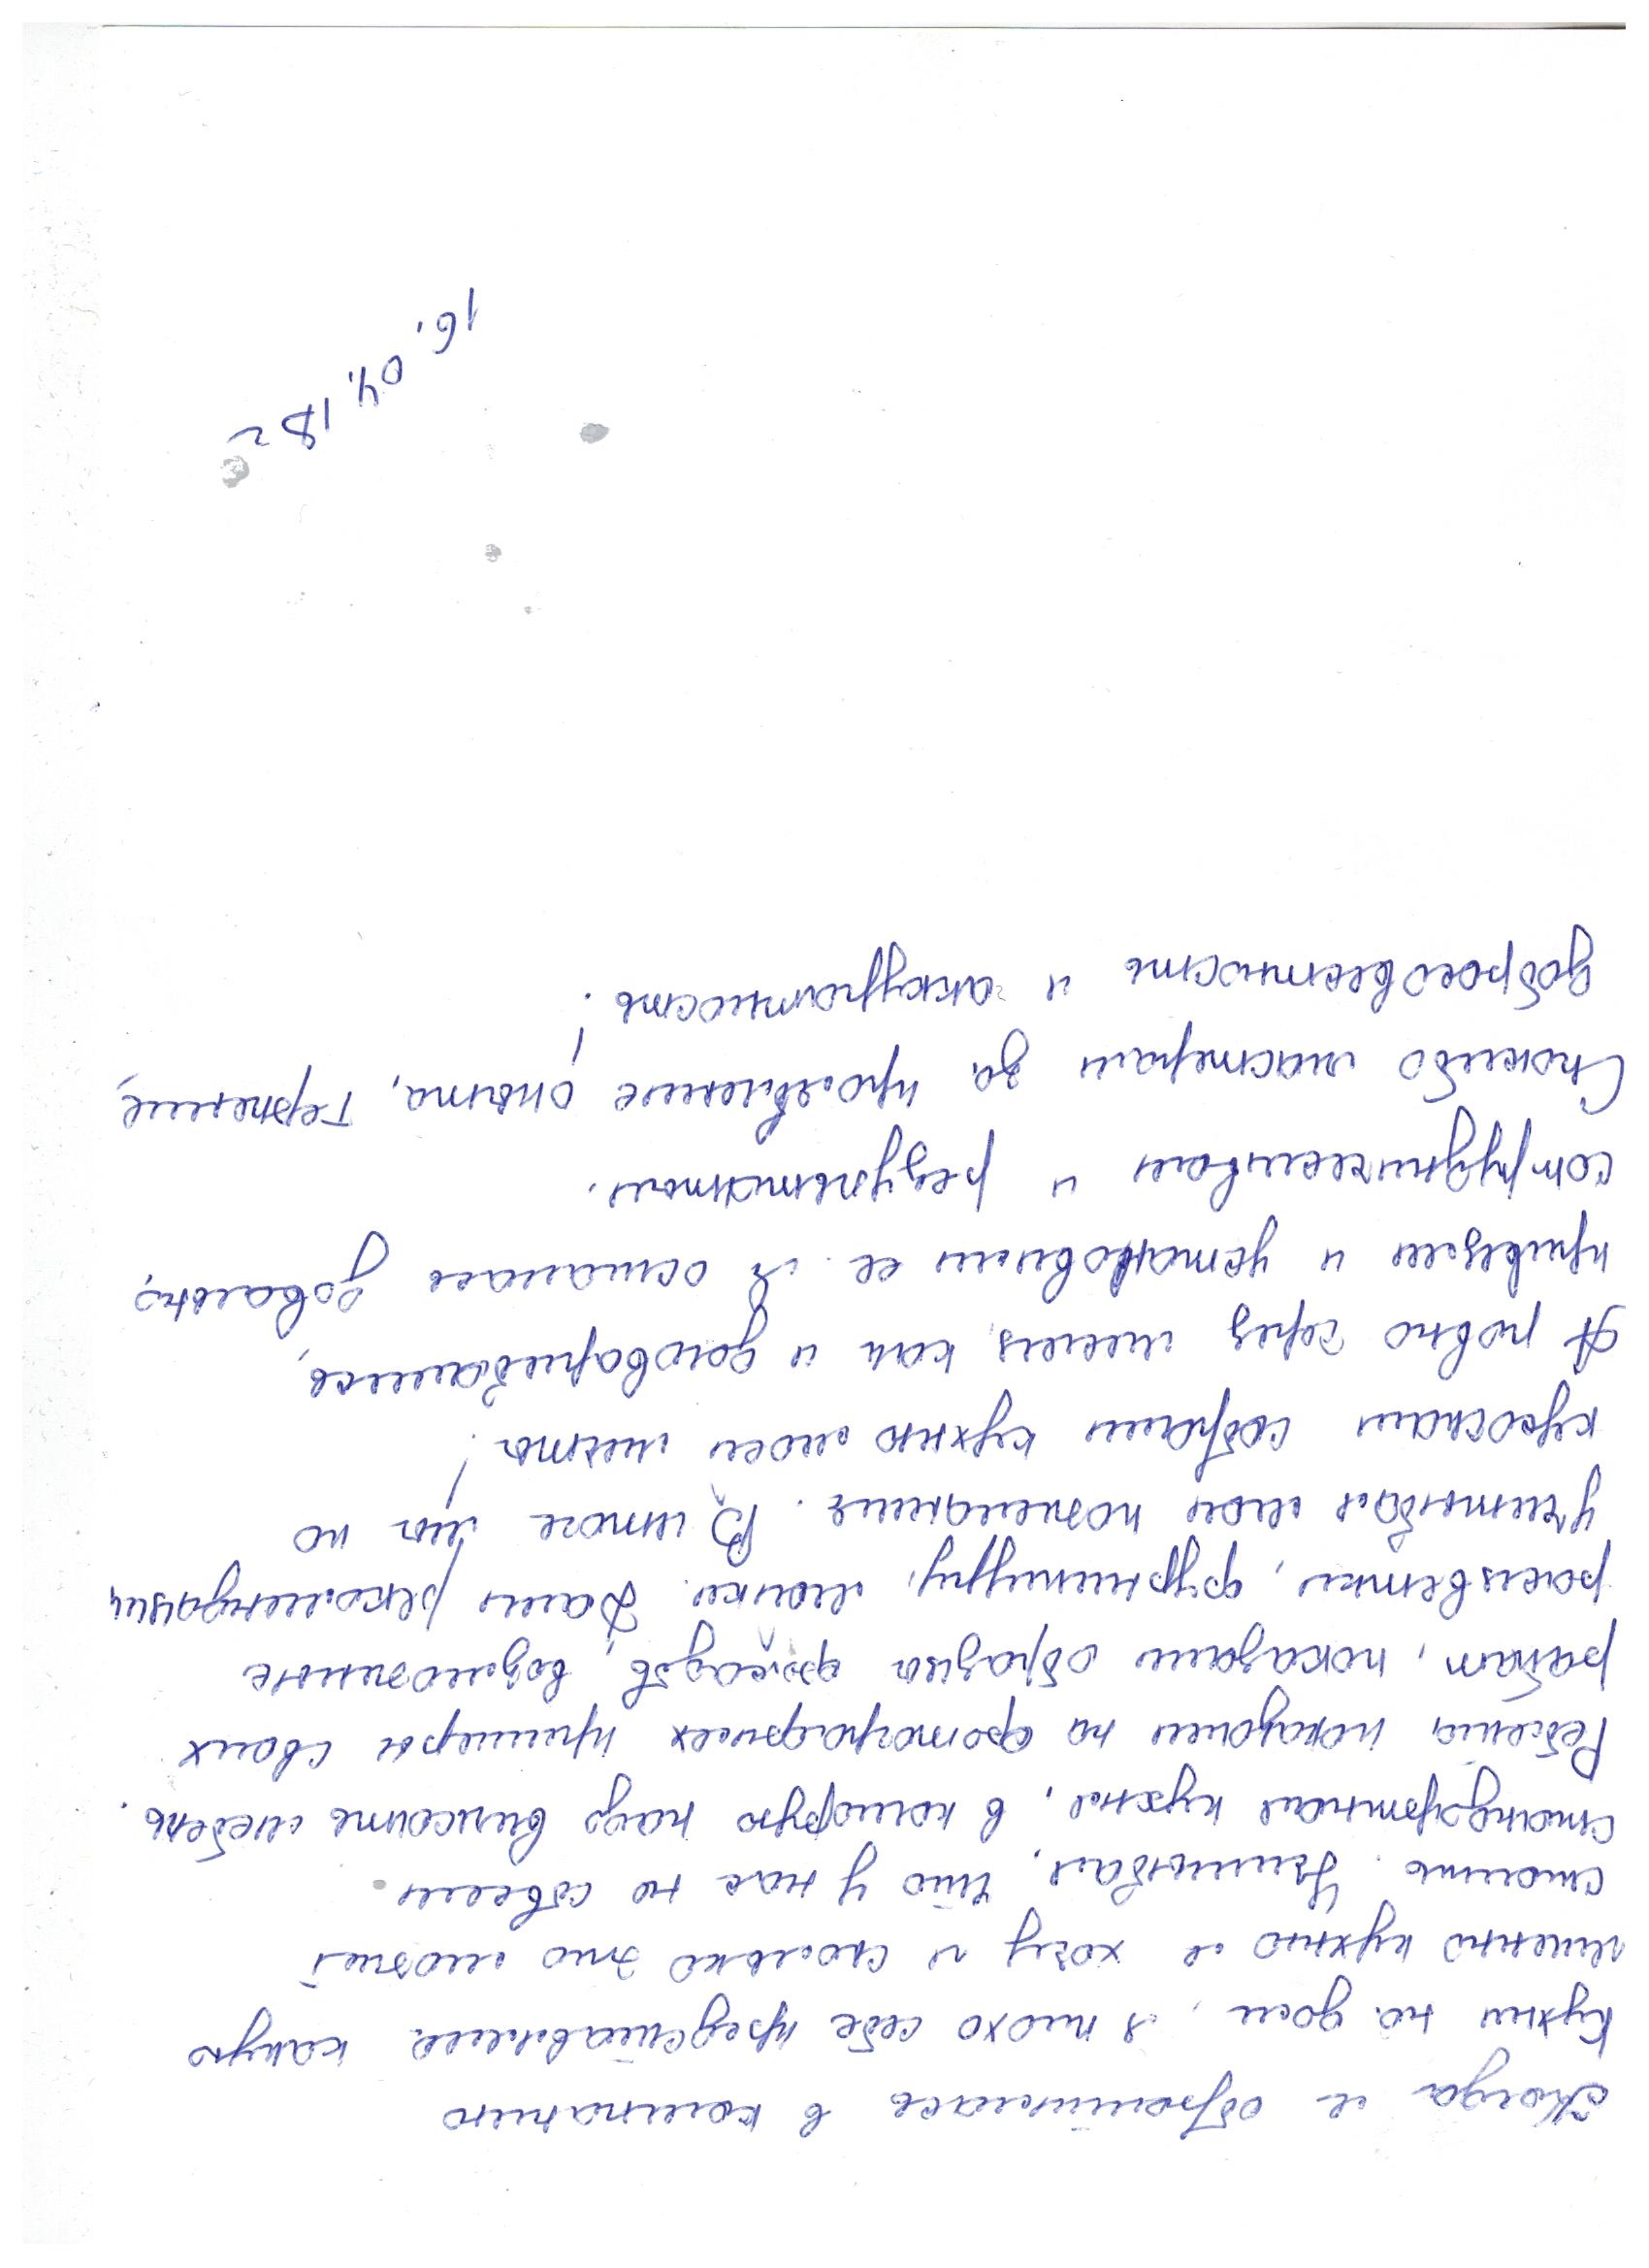 Когда я обратилась в компанию
Кухни на дом, я плохо себе представляла какую
именно кухню я хочу и сколько это может
стоить. Учитывая, что у нас не совсем
стандартная кухня, в которую надо вписать мебель.
Ребята показали на фотографиях примеры своих
работ, показали образцы фасадов, возможные
расцветки, фурнитуру, мойки. Дали рекомендации
учитывая мои пожелания. В итоге мы по
кусочкам собрали кухню моей мечты!
А ровно через месяц, как и договаривались,
привезли и установили ее. Я осталась довольна
сотрудничеством и результатом.
Спасибо мастерам за проявление опыта, терпение,
добросовестность и аккуратность!
16.04.18г